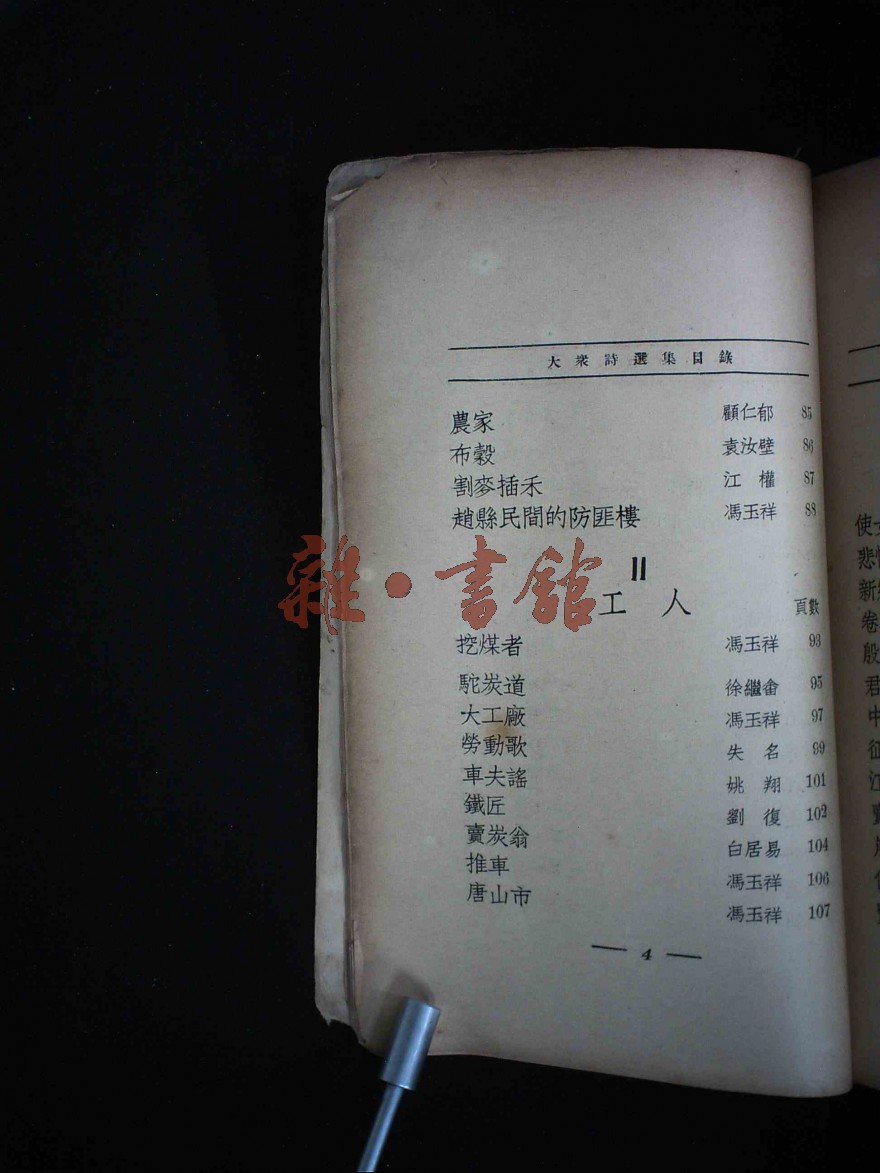 大衆詩選集目錄
農家 顧仁郁 85
布穀 袁汝璧 86
割麥插禾 江權 87
趙縣民間的防匪樓 馮玉祥 88
雜·書館
II
工人 頁數
挖煤者 馮玉祥 93
駝炭道 徐繼畬 95
大工廠 馮玉祥 97
勞動歌 失名 99
車夫謠 姚翔 101
鐵匠 劉復 102
賣炭翁 白居易 104
推車 馮玉祥 106
唐山市 馮玉祥 107
— 4 —
使
悲
新
卷
殷
君
中
征
江